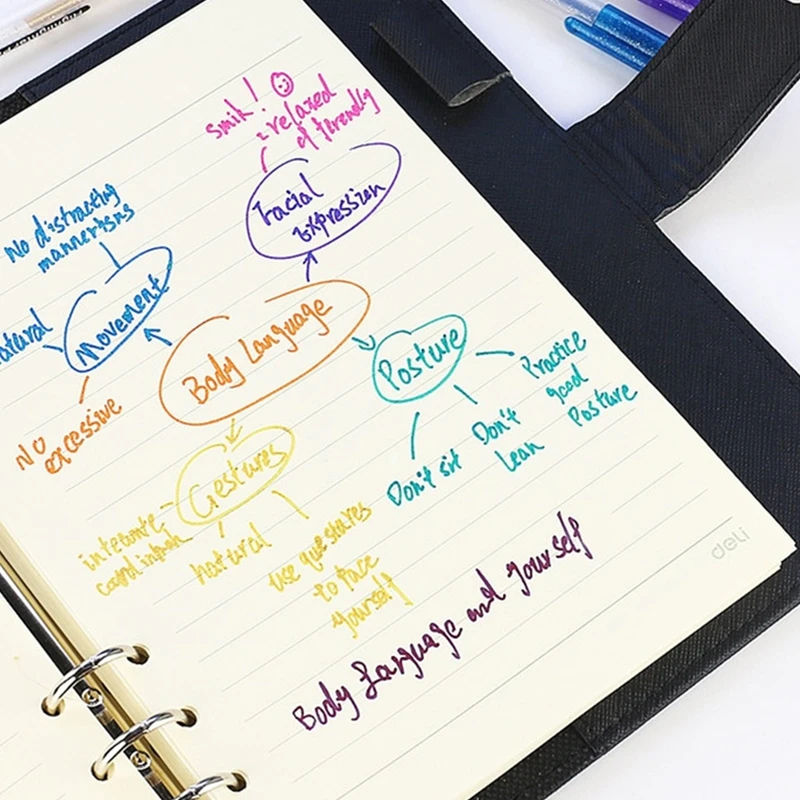 smile! ☺
- relaxed
& friendly
Facial
Expression
No distracting
mannerisms
Movement
natural
No
excessive
Body Language
Posture
Practice
good
Posture
Don't sit
Don't
lean
Gestures
integrate,
natural
use
to face
yourself
Body Language and yourself
deli